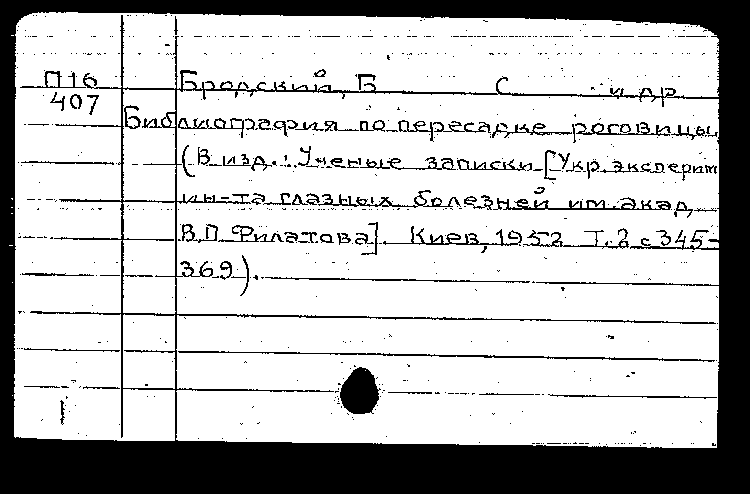 П16
407
Бродский, Б С и др
Библиография по пересадке роговицы
(В изд.: Ученые записки [Укр. эксперим
ин-та глазных болезней им. акад,
В.П. Филатова]. Киев, 1952 Т. 2 с 345-
369).
1